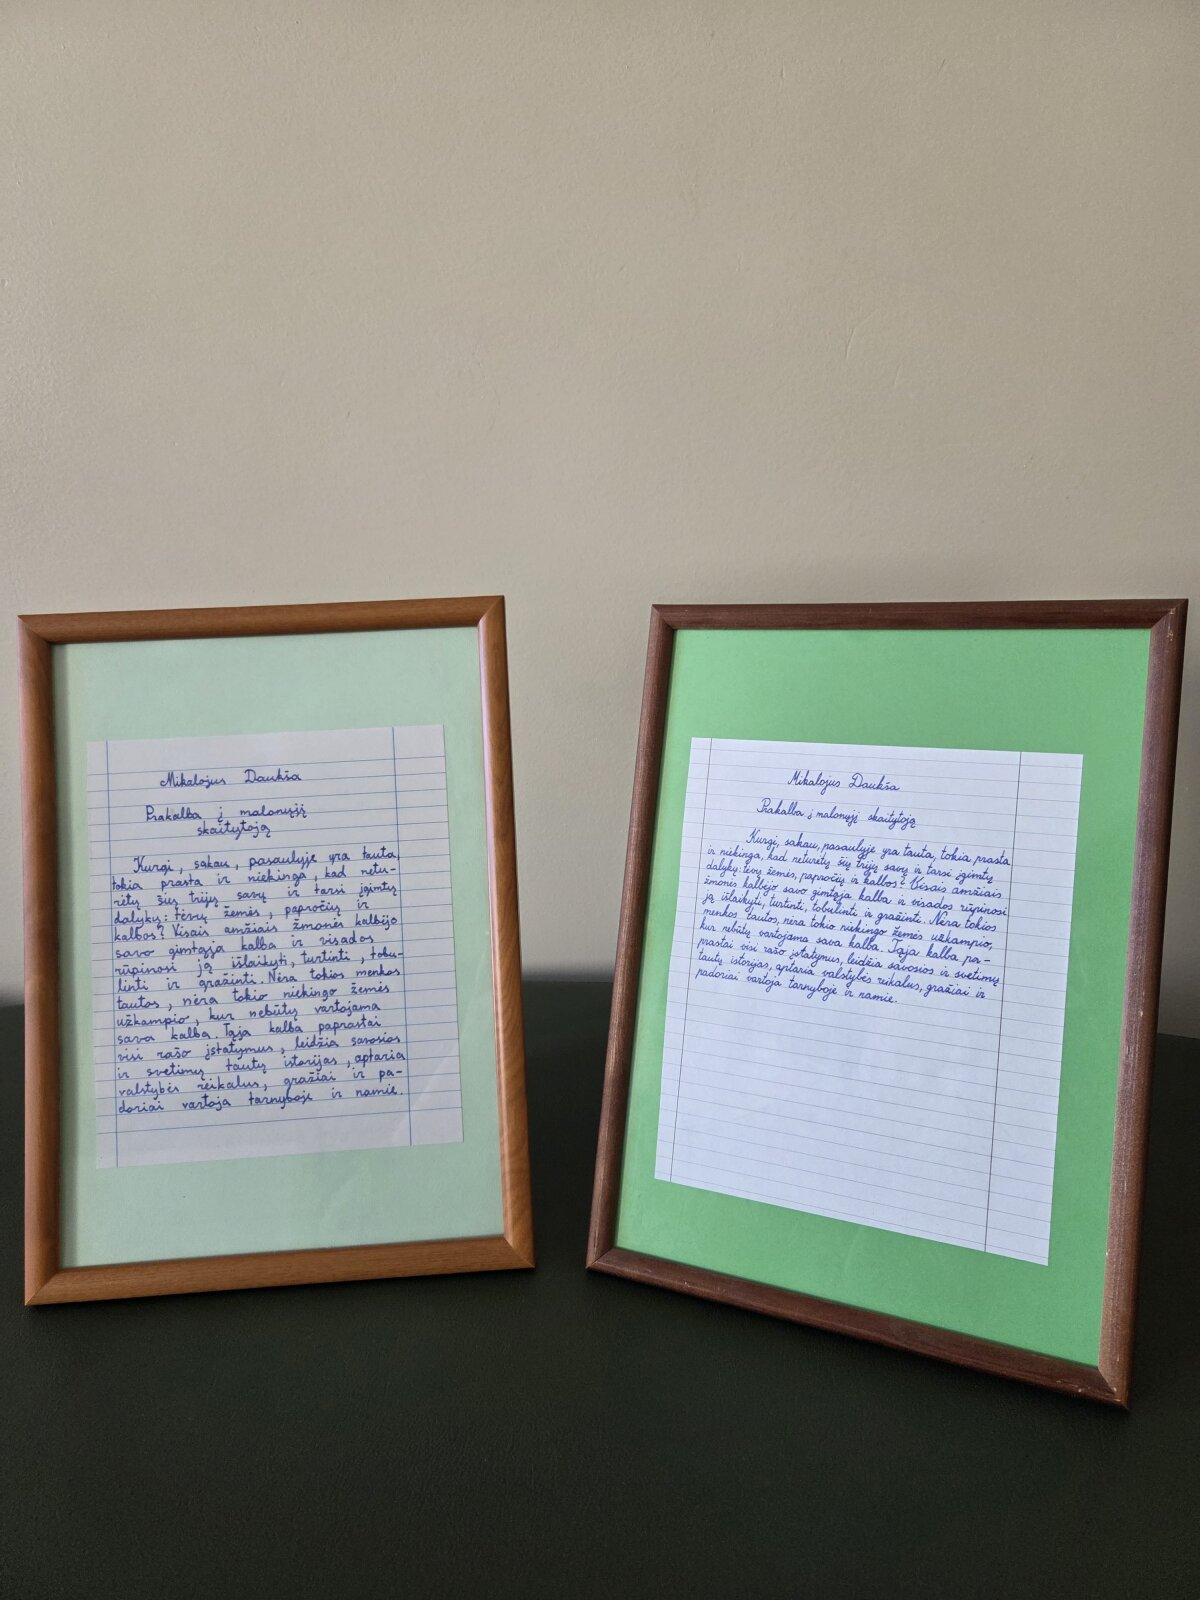 Mikalojus Daukša
Prakalba į malonųjį
skaitytoją
Kurgi, sakau, pasaulyje yra tauta,
tokia prasta ir niekinga, kad netu-
rėtų šių trijų savų ir tarsi įgimtų
dalykų: tėvų žemės, papročių ir
kalbos? Visais amžiais žmonės kalbėjo
savo gimtąja kalba ir visados
rūpinosi ją išlaikyti, turtinti, tobu-
linti ir gražinti. Nėra tokios menkos
tautos, nėra tokio niekingo žemės
užkampio, kur nebūtų vartojama
sava kalba. Tąja kalba paprastai
visi rašo įstatymus, leidžia savosios
ir svetimų tautų istorijas, aptaria
valstybės reikalus, gražiai ir pa-
doriai vartoja tarnyboje ir namie.
Mikalojus Daukša
Prakalba į malonųjį skaitytoją
Kurgi, sakau, pasaulyje yra tauta, tokia prasta
ir niekinga, kad neturėtų šių trijų savų ir tarsi įgimtų
dalykų: tėvų žemės, papročių ir kalbos? Visais amžiais
žmonės kalbėjo savo gimtąja kalba ir visados rūpinosi
ją išlaikyti, turtinti, tobulinti ir gražinti. Nėra tokios
menkos tautos, nėra tokio niekingo žemės užkampio,
kur nebūtų vartojama sava kalba. Tąja kalba pa-
prastai visi rašo įstatymus, leidžia savosios ir svetimų
tautų istorijas, aptaria valstybės reikalus, gražiai ir
padoriai vartoja tarnyboje ir namie.